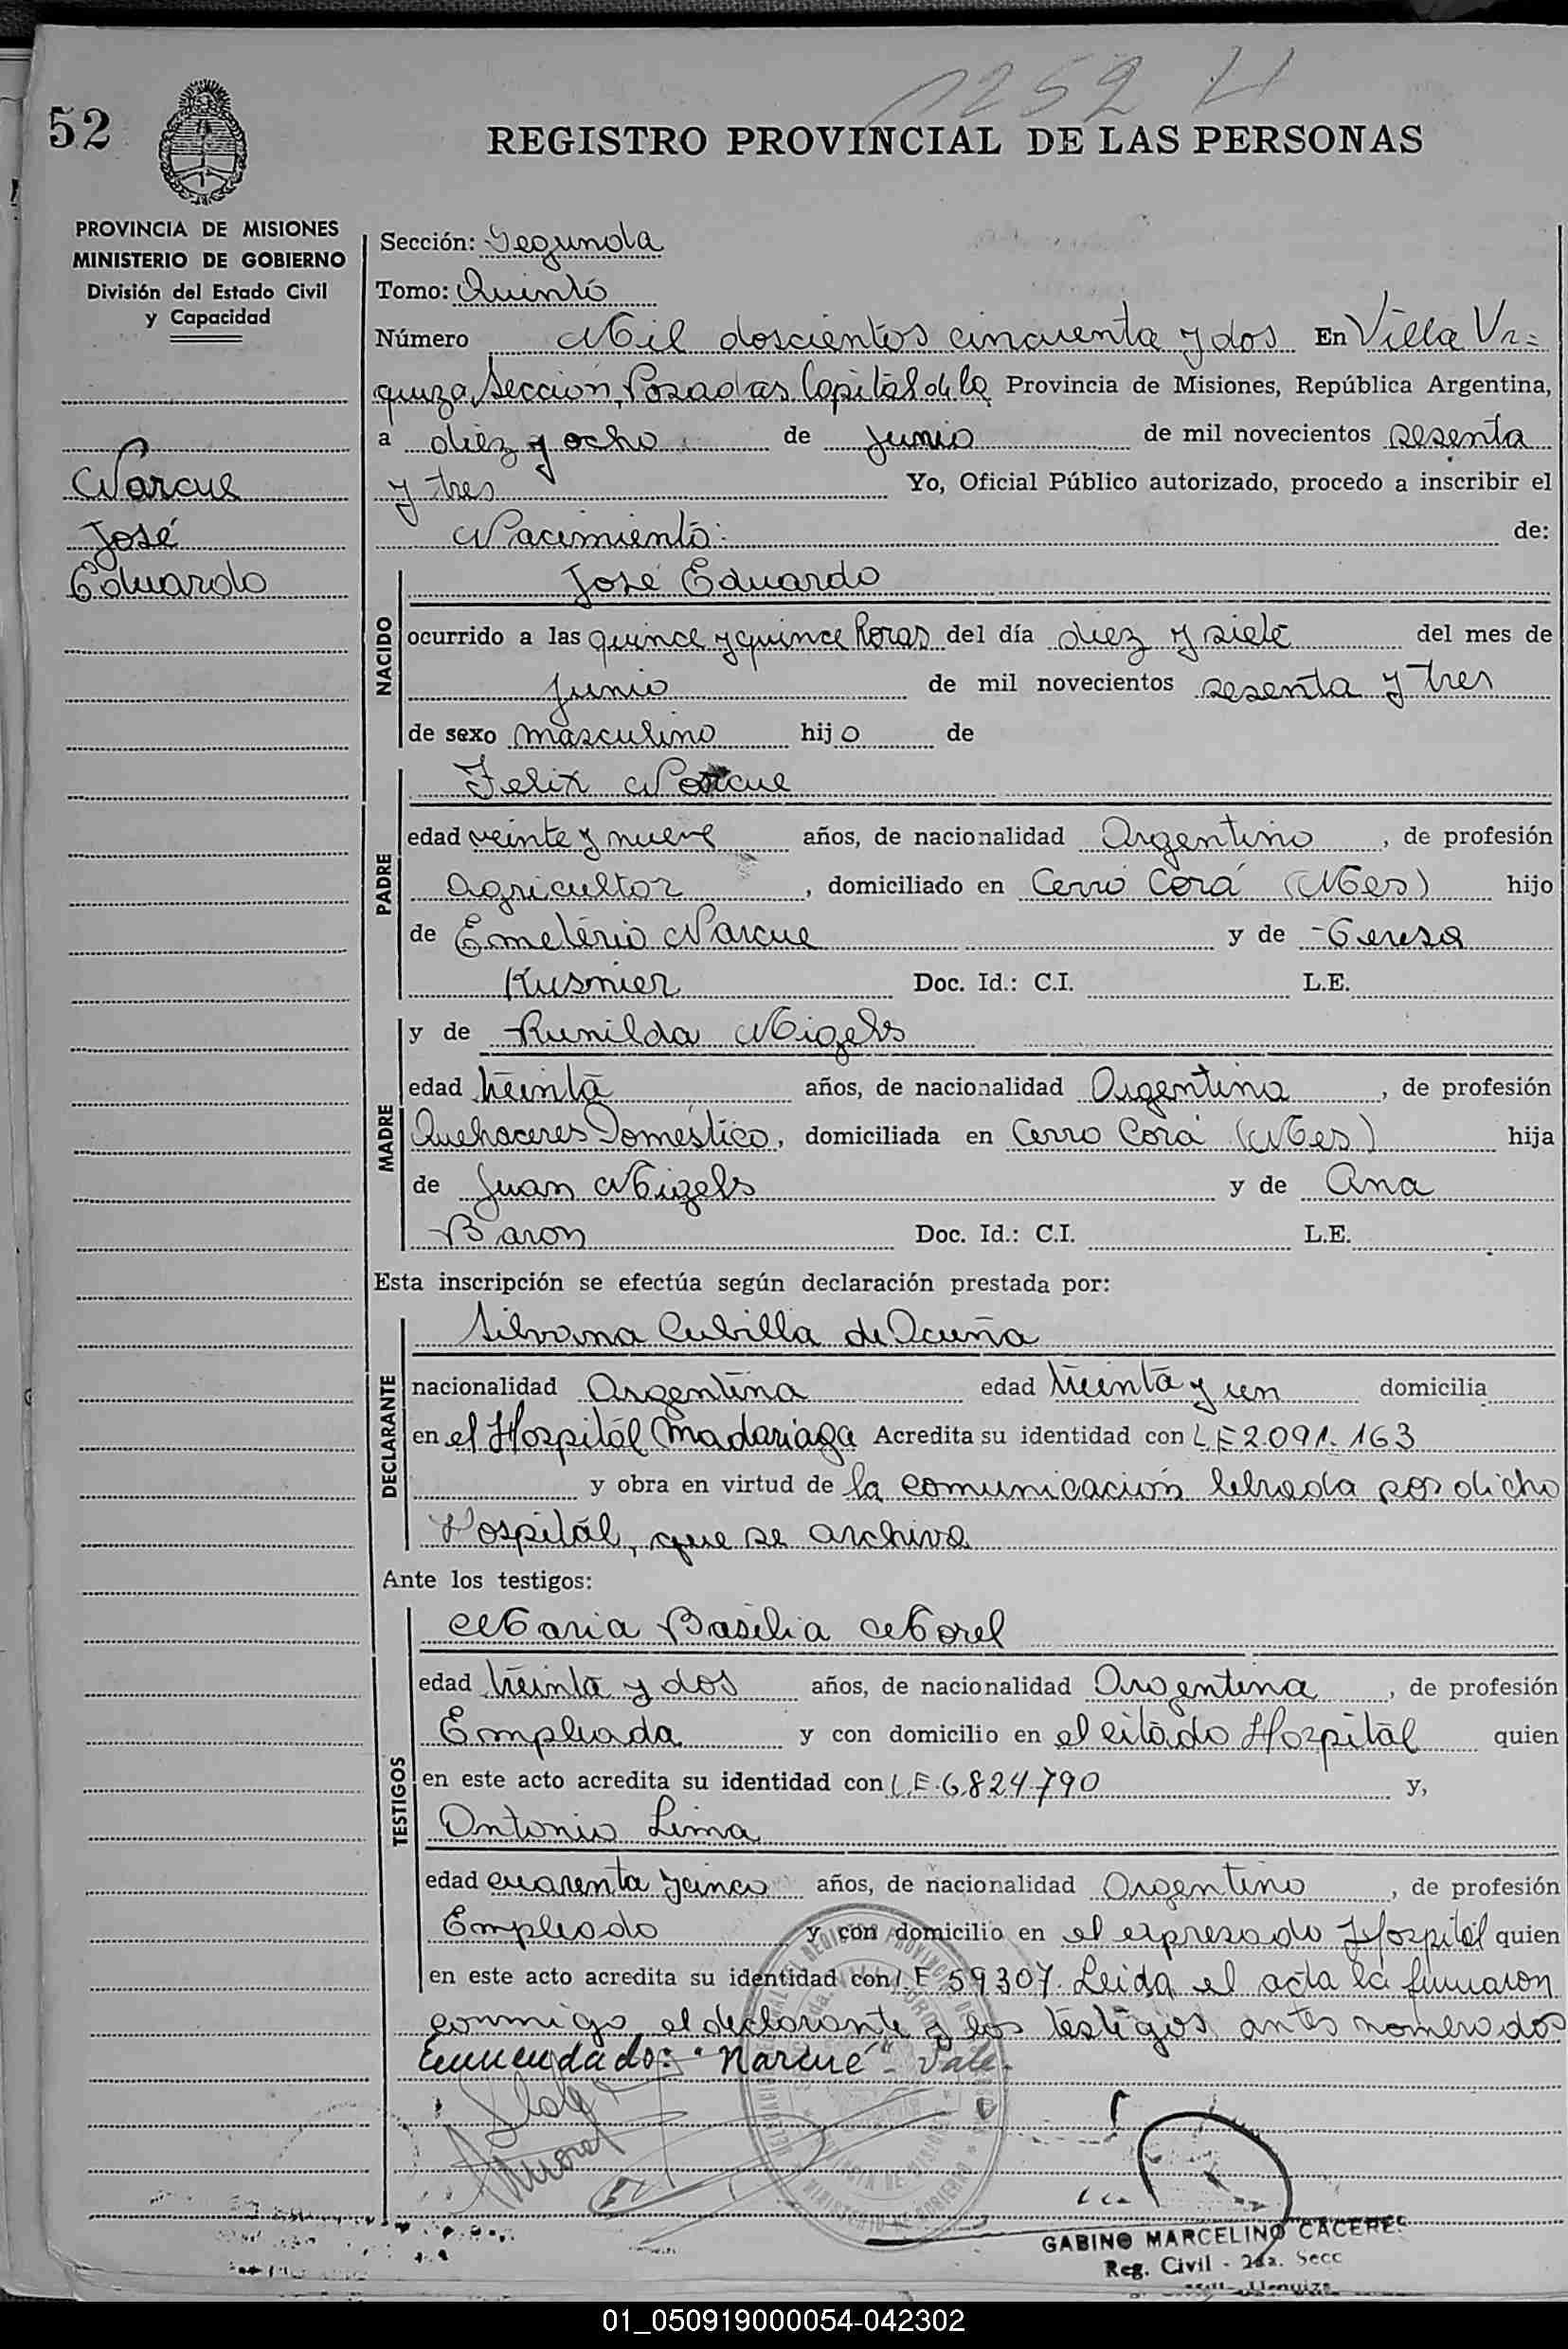 1252 H
52
REGISTRO PROVINCIAL DE LAS PERSONAS
PROVINCIA DE MISIONES
MINISTERIO DE GOBIERNO
División del Estado Civil
y Capacidad
Narcue
José
Eduardo
Sección: Segunda
Tomo: Quinto
Número Mil doscientos cincuenta y dos En Villa Ur=
quiza, Sección, Posadas Capital de la Provincia de Misiones, República Argentina,
a diez y ocho de junio de mil novecientos sesenta
y tres Yo, Oficial Público autorizado, procedo a inscribir el
Nacimiento: de:
NACIDO
José Eduardo
ocurrido a las quince y quince horas del día diez y siete del mes de
junio de mil novecientos sesenta y tres
de sexo masculino hijo de
PADRE
Felix Narcue
edad veinte y nueve años, de nacionalidad Argentino, de profesión
Agricultor, domiciliado en Cerro Corá (Mes) hijo
de Emeterio Narcue y de Teresa
Kusnier Doc. Id.: C.I. L.E.
MADRE
y de Runilda Migels
edad treinta años, de nacionalidad Argentina, de profesión
Quehaceres Domestico, domiciliada en Cerro Corá (Mes) hija
de Juan Migels y de Ana
Baron Doc. Id.: C.I. L.E.
Esta inscripción se efectúa según declaración prestada por:
DECLARANTE
Silvana Cubilla de Acuña
nacionalidad Argentina edad treinta y un domicilia
en el Hospital Madariaga Acredita su identidad con L E 2.091.163
y obra en virtud de la comunicación librada por dicho
Hospital, que se archiva
Ante los testigos:
TESTIGOS
Maria Basilia Morel
edad treinta y dos años, de nacionalidad Argentina, de profesión
Empleada y con domicilio en el citado Hospital quien
en este acto acredita su identidad con L.E. 6.824.790 y,
Antonio Lima
edad cuarenta y cinco años, de nacionalidad Argentino, de profesión
Empleado y con domicilio en el expresado Hospital quien
en este acto acredita su identidad con L.E 59307. Leida el acta la firmaron
conmigo, el declarante y los testigos antes nomerados
Enmendado: "Narcué" - Vale.
Morel
GABINO MARCELINO CACERES
Reg. Civil - 2da. Secc
Urquiza
01_050919000054-042302